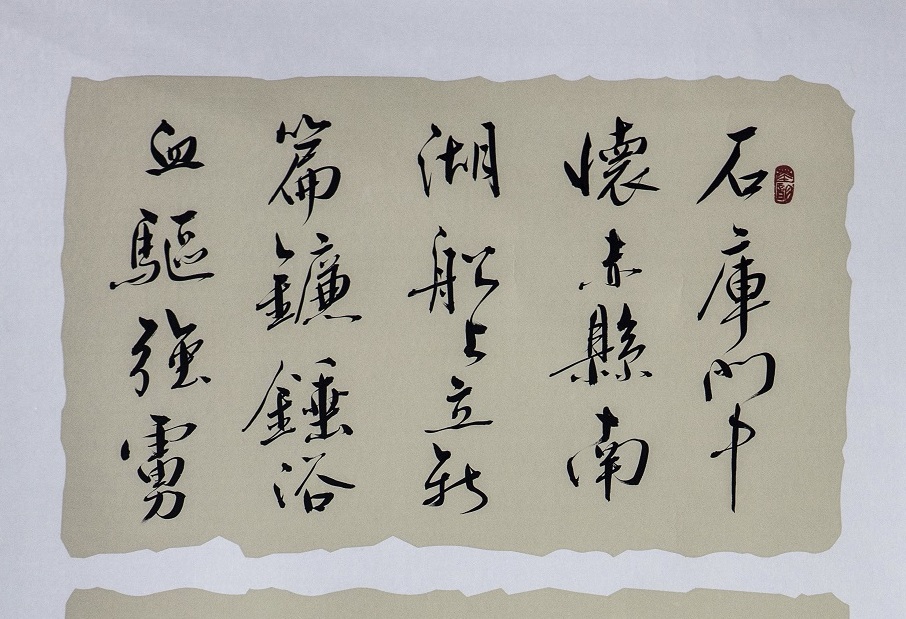 石庫門中
懷赤縣南
湖船上立新
篇鐮錘浴
血驅強虜